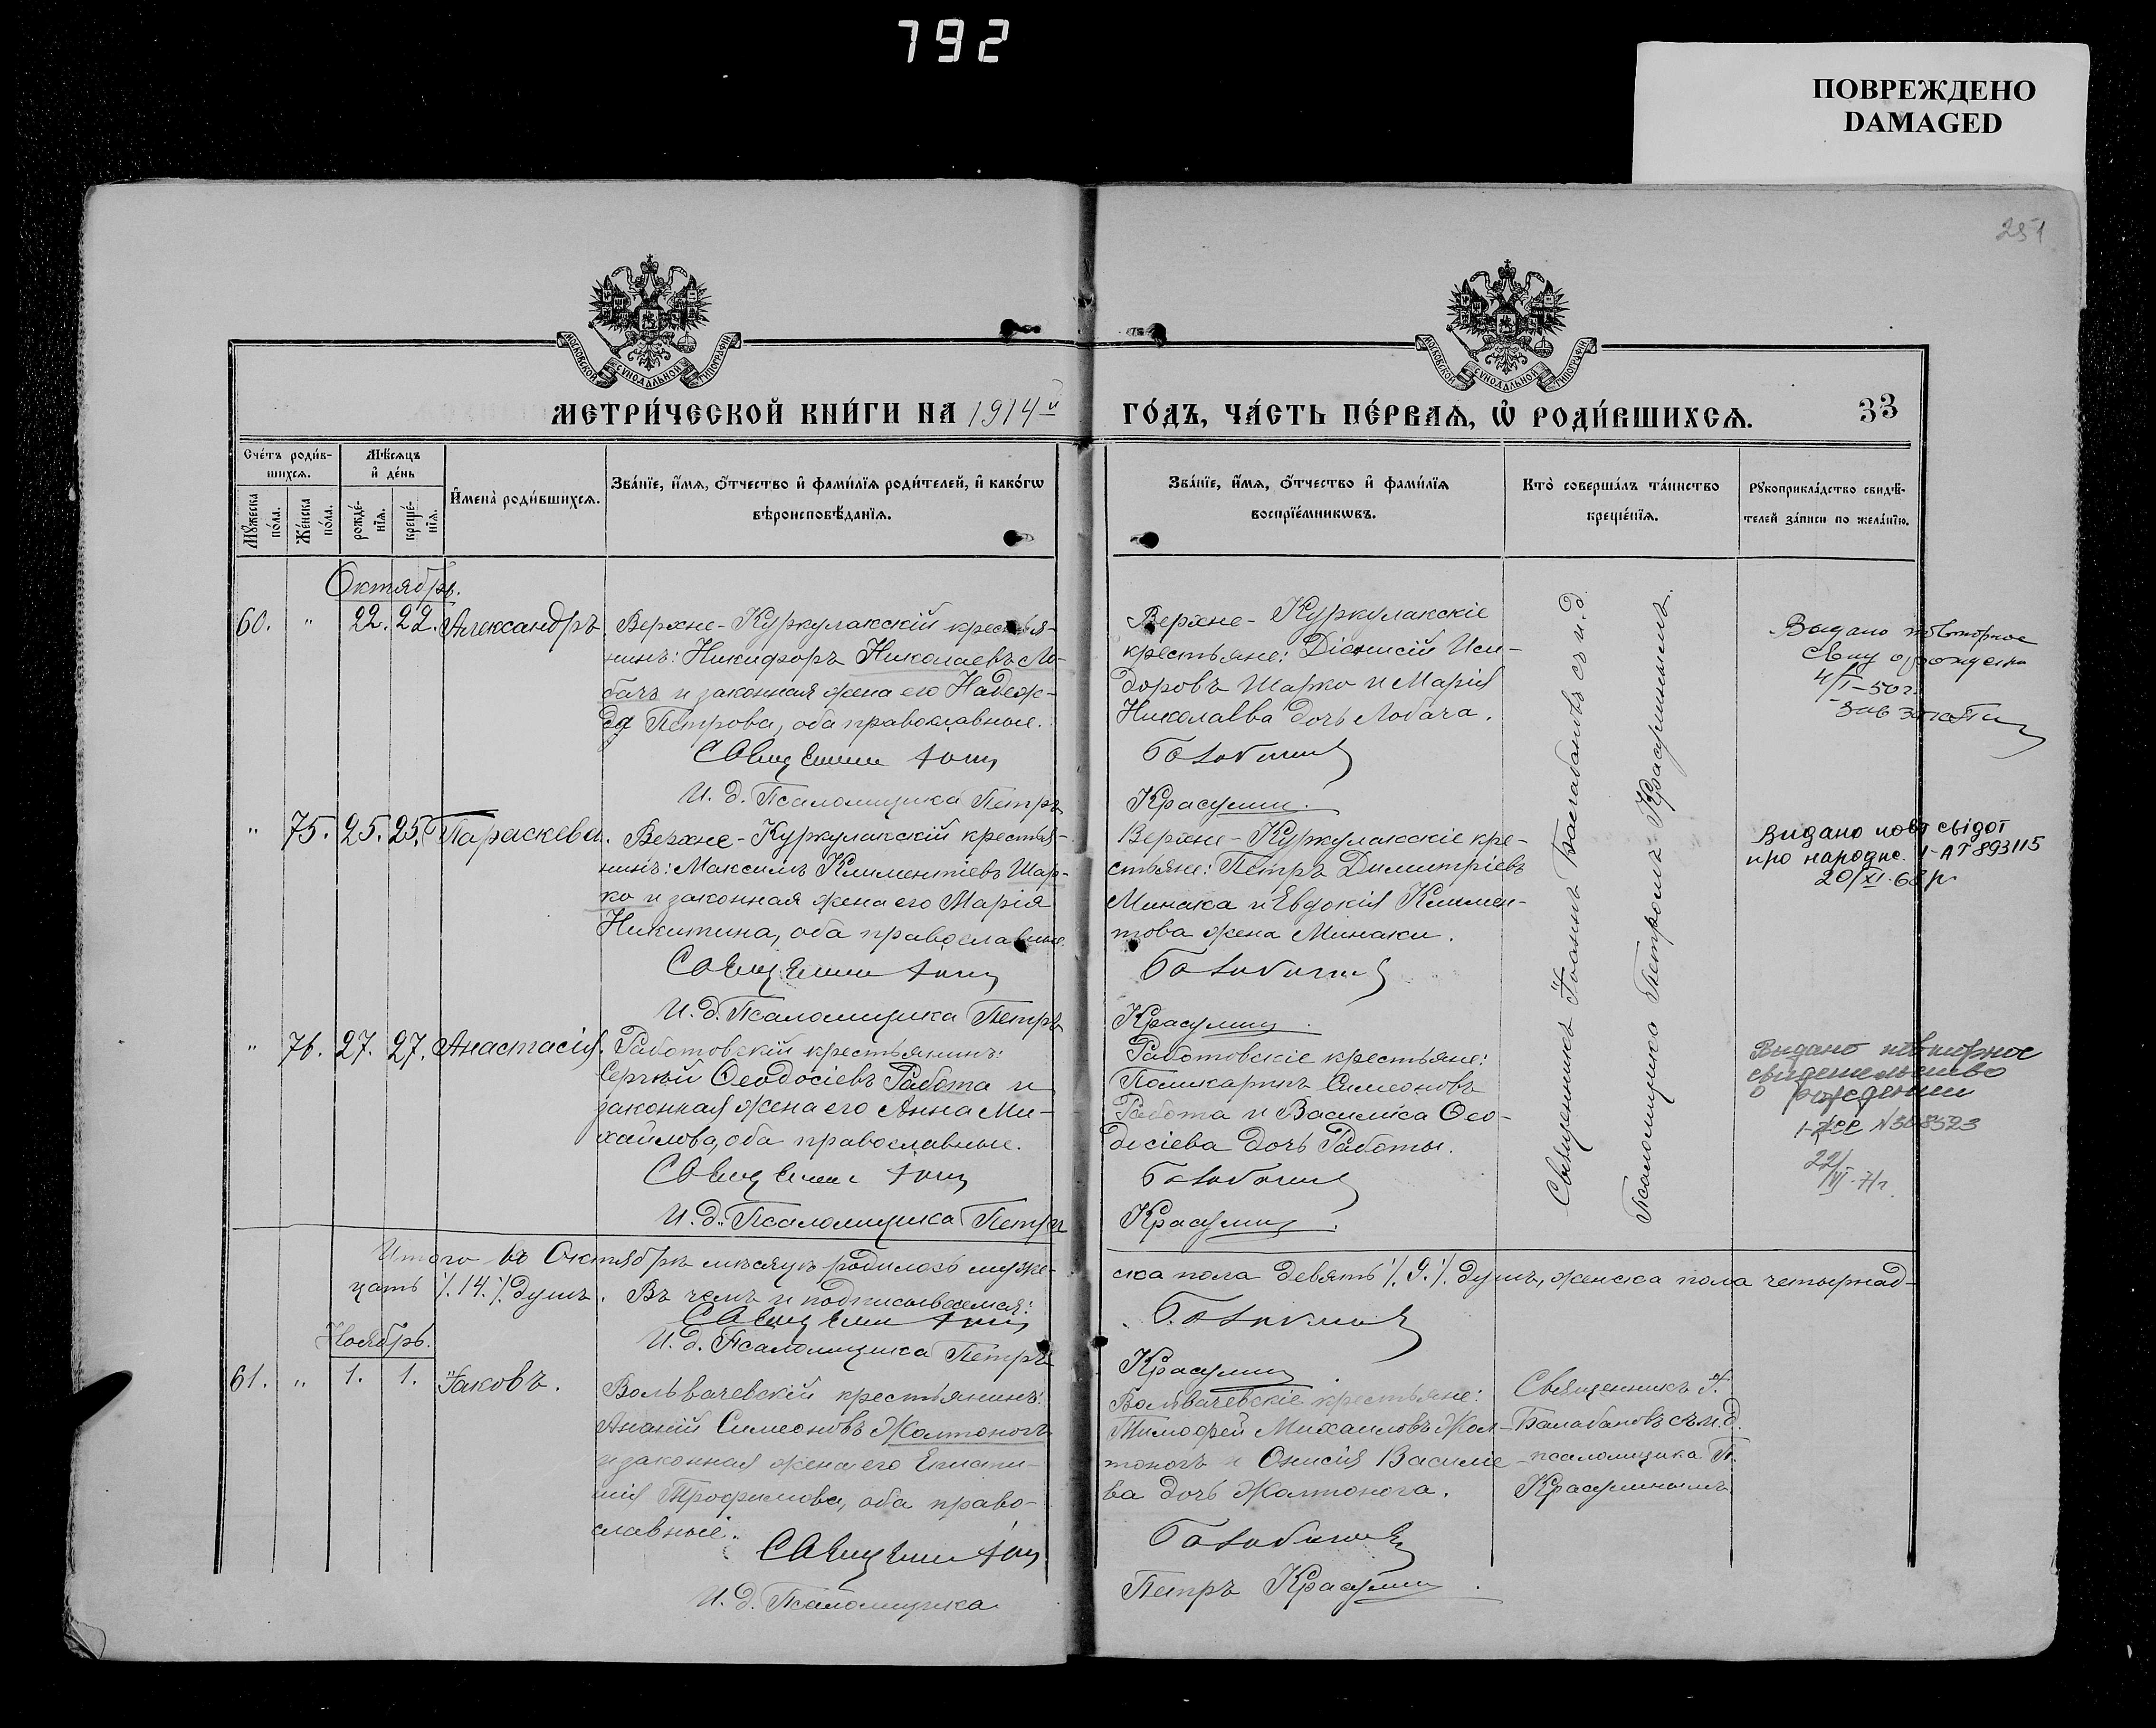 792
ПОВРЕЖДЕНО
DAMAGED
251
МОСКОВСКОЙ СѴНОДАЛЬНОЙ ТИПОГРАФІИ
МОСКОВСКОЙ СѴНОДАЛЬНОЙ ТИПОГРАФІИ
МЕТРИ́ЧЕСКОЙ КНИ́ГИ НА 1914й
ГО́ДЪ, ЧА́СТЬ ПЕ́РВАѦ, Ѽ РОДИ́ВШИХСѦ.
33
Сче́тъ роди́в-
шихсѧ.
Мѣ́сѧцъ
и҆ де́нь
Мꙋ́жеска
по́ла.
Же́нска
по́ла.
рожде́-
нїѧ.
креще́-
нїѧ.
И҆мена̀ роди́вшихсѧ.
Зва́нїе, и҆́мѧ, ѻ҆́тчество и҆ фами́лїѧ роди́телей, и҆ како́гѡ
вѣроисповѣ́данїѧ.
Зва́нїе, и҆́мѧ, ѻ҆́тчество и҆ фами́лїѧ
воспрїе́мникѡвъ.
Кто̀ соверша́лъ та́инство
креще́нїѧ.
Рꙋкоприкла́дство свидѣ́-
телей за́писи по жела́нїю.
Октябрь.
60. " 22. 22. Александръ
Верхне-Куркулакскій крестья-
нинъ: Никифоръ Николаевъ Ло-
бачъ и законная жена его Надеж-
да Петрова, оба православные.
Священникъ Іоаннъ
И. д. Псаломщика Петръ
Верхне-Куркулакскіе
крестьяне: Діонисій Иси-
доровъ Шарко и Марія
Николаева дочь Лобача.
Балабановъ
Красулинъ.
Священникъ Іоаннъ Балабановъ съ и. д.
Псаломщика Петромъ Красулинымъ.
Выдано повторное
св-ву о рождении
4/I-50г.
"75. 25. 25. Параскева.
Верхне-Куркулакскій крестья-
нинъ: Максимъ Климентіевъ Шар-
ко и законная жена его Марія
Никитина, оба православные.
Священникъ Іоаннъ
И. д. Псаломщика Петръ
Верхне-Куркулакскіе кре-
стьяне: Петръ Димитріевъ
Минака и Евдокія Климен-
това жена Минаки.
Балабановъ
Красулинъ.
Видано повт свідот
про народж. I-АТ 893115
20/XI-68р.
" 76. 27. 27. Анастасія.
Работовскій крестьянинъ:
Сергѣй Ѳеодосіевъ Работа и
законная жена его Анна Ми-
хайлова, оба православные.
Священникъ Іоаннъ
И. д. Псаломщика Петръ
Работовскіе крестьяне:
Поликарпъ Симеоновъ
Работа и Василиса Ѳео-
досіева дочь Работы.
Балабановъ
Красулинъ.
Выдано повторное
свидетельство
о рождении
22/VI-71г.
Итого въ Октябрѣ мѣсяцѣ родилось муже-
ска пола девять /.9./. душъ, женска пола четырнад-
цать /.14./. душъ. Въ чемъ и подписываемся:
Священникъ Іоаннъ
Балабановъ
И. д. Псаломщика Петръ
Красулинъ.
Ноябрь.
61. " 1. 1. Іаковъ.
Вольвачевскій крестьянинъ:
Ананій Симеоновъ Жолтоногъ
и законная жена его Еписта-
мія Трофимова, оба право-
славные.
Священникъ Іоаннъ
И. д. Псаломщика
Вольвачевскіе крестьяне:
Тимофей Михаиловъ Жол-
тоногъ и Онисія Василіе-
ва дочь Жолтонога.
Балабановъ
Петръ Красулинъ.
Священникъ І.
Балабановъ съ и. д.
псаломщика П.
Красулинымъ